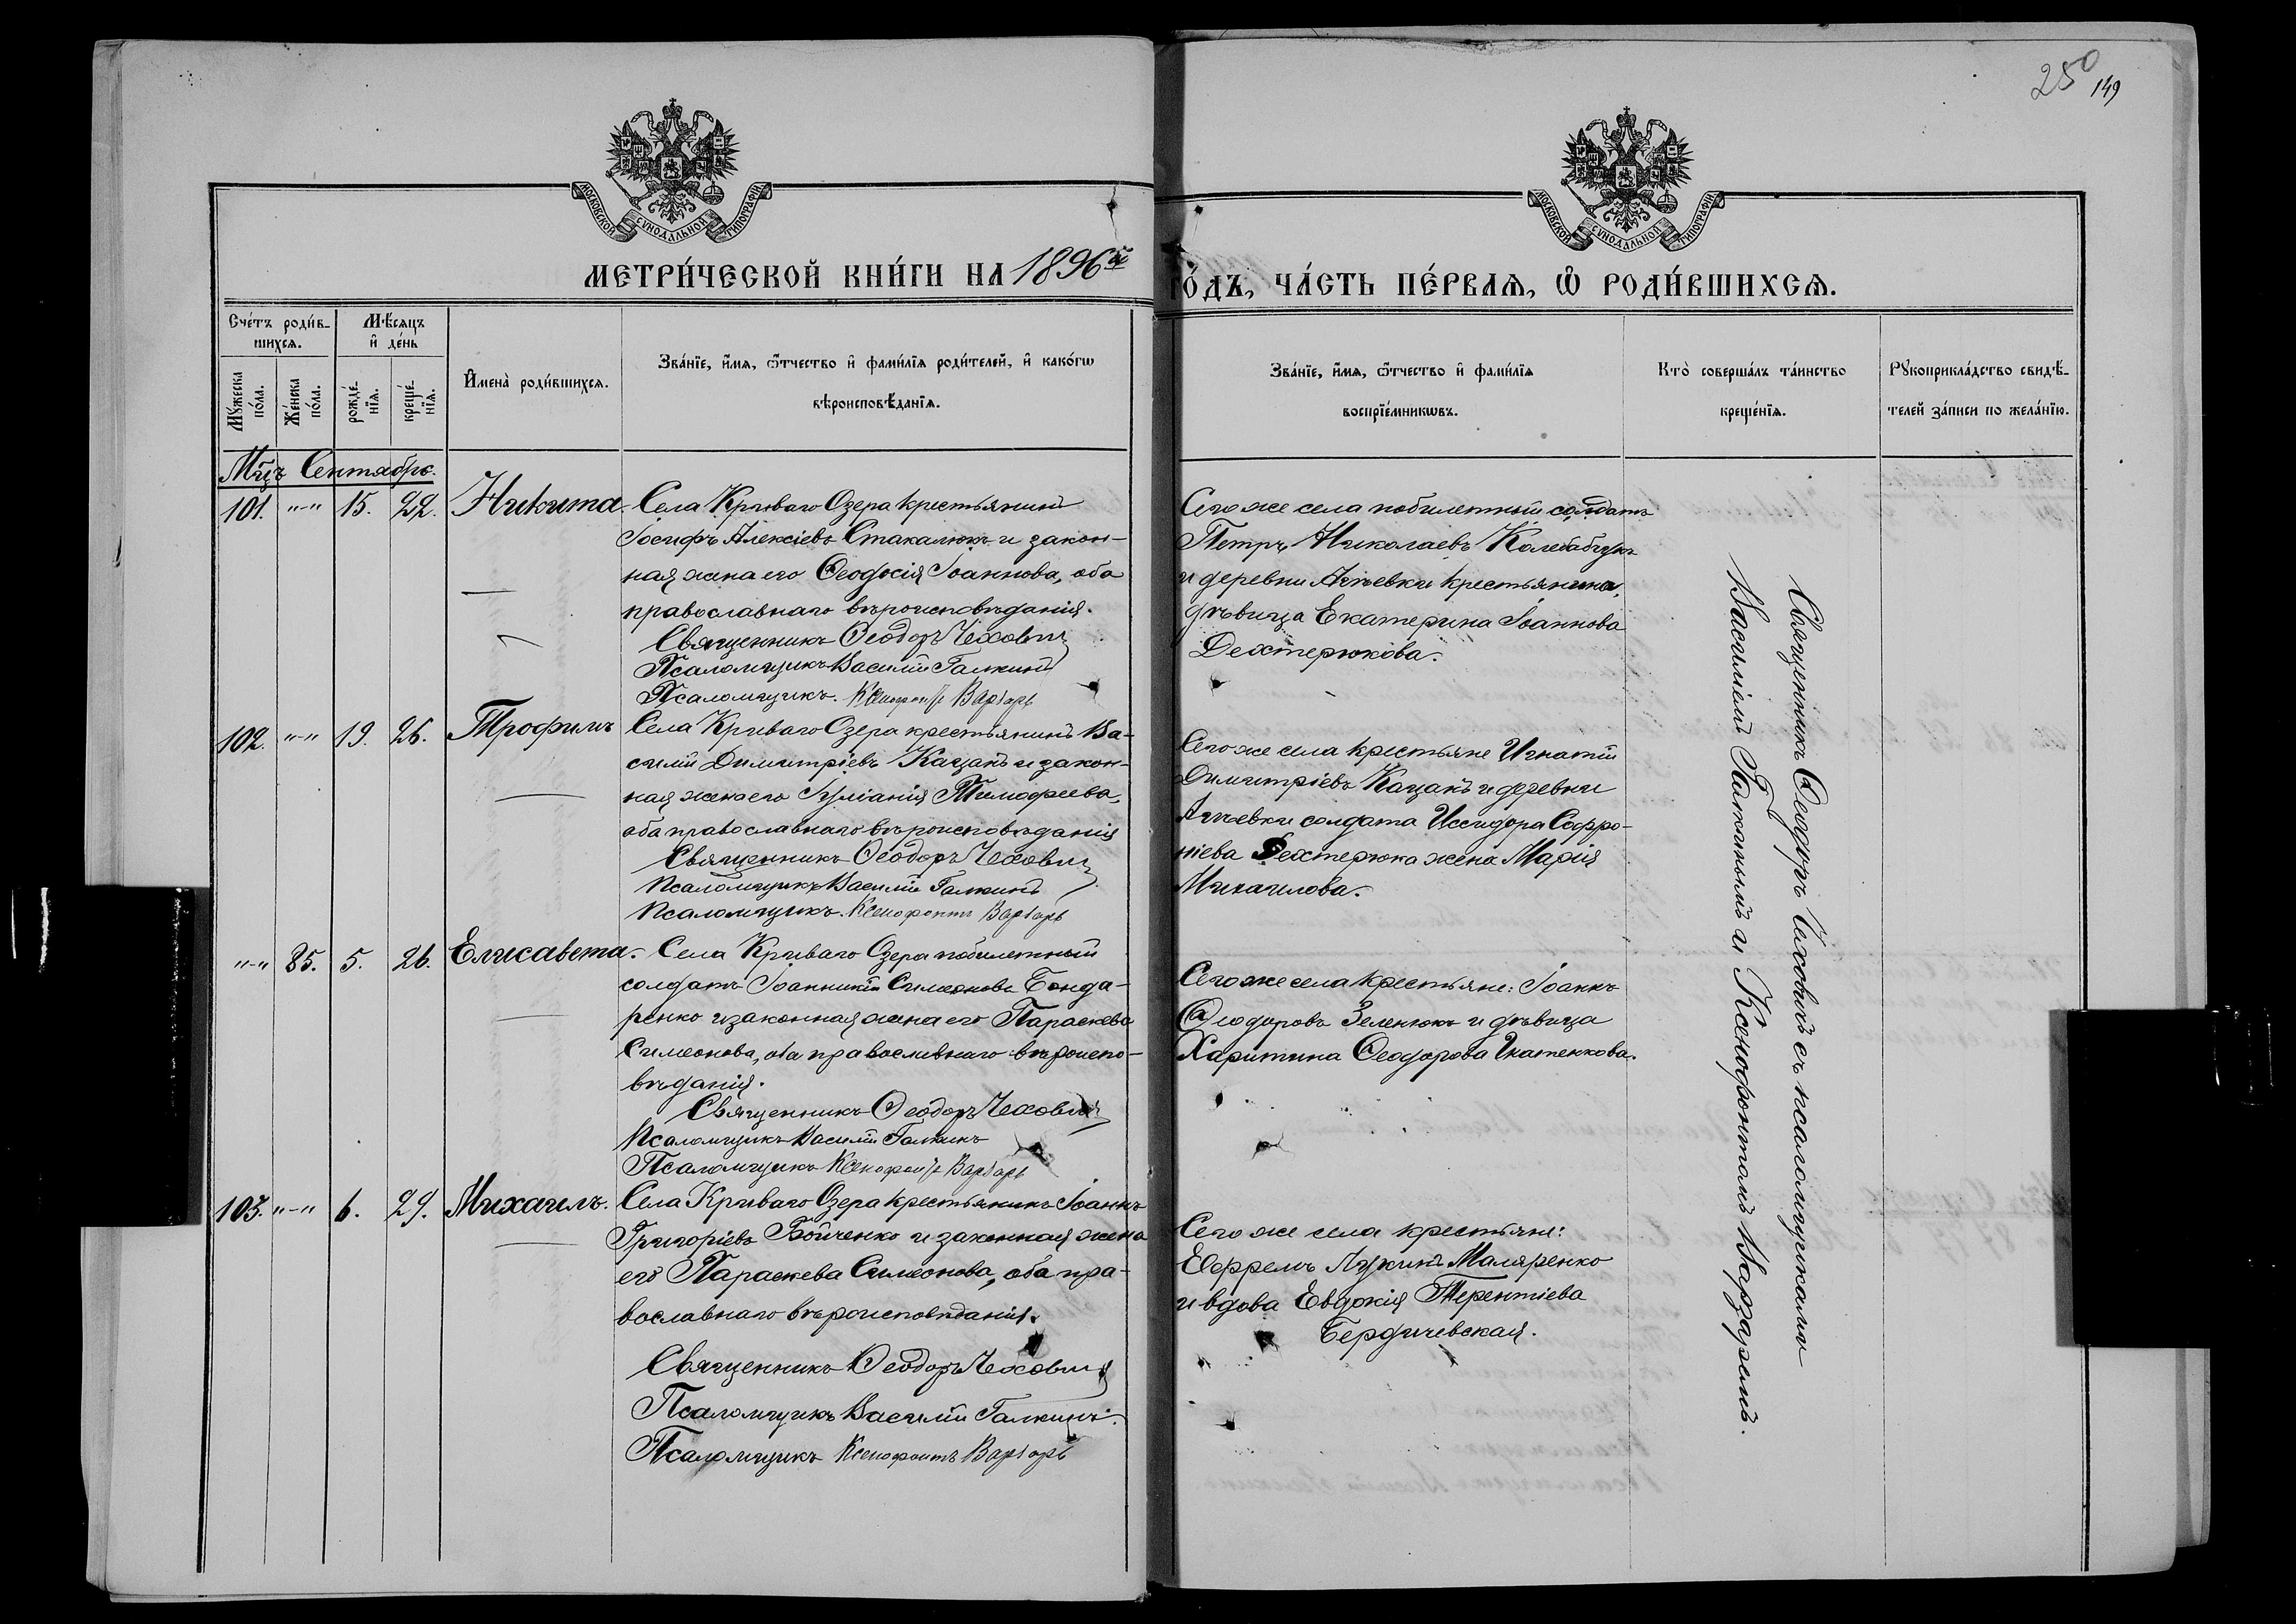 250
149
МОСКОВСКОЙ СУНОДАЛЬНОЙ ТИПОГРАФІИ
МОСКОВСКОЙ СУНОДАЛЬНОЙ ТИПОГРАФІИ
МЕТРИ́ЧЕСКОЙ КНИ́ГИ НА 1896й
ГО́ДЪ, ЧА́СТЬ ПЕ́РВАѦ, Ѡ РОДИ́ВШИХСѦ.
Сче́тъ роди́в-
шихсѧ.
Мѣсѧцъ
и҆ де́нь
Мꙋ́жеска
по́ла.
Же́нска
по́ла.
рожде́-
нїѧ.
креще́-
нїѧ.
И҆мена̀ роди́вшихсѧ.
Зва́нїе, и҆́мѧ, ѻ҆́тчество и҆ фами́лїѧ роди́телей, и҆ како́гѡ
вѣроисповѣ́данїѧ.
Зва́нїе, и҆́мѧ, ѻ҆́тчество и҆ фами́лїѧ
воспрїе́мникѡвъ.
Кто̀ соверша́лъ та́инство
креще́нїѧ.
Рꙋкоприкла́дство свидѣ́-
телей за́писи по жела́нїю.
Мцъ Сентябрь.
101. "-" 15. 22. Никита.
Села Криваго Озера крестьянинъ
Іосифъ Алексіевъ Стакалюкъ и закон-
ная жена его Ѳеодосія Іоаннова, оба
православнаго вѣроисповѣданія.
Священникъ Ѳеодоръ Чеховичъ
Псаломщикъ Василій Галкинъ
Псаломщикъ. Ксенофонтъ Варзарь
Сего же села побилетный солдатъ
Петръ Николаевъ Колебабчукъ
и деревни Ачиевки крестьянина,
дѣвица Екатерина Іоаннова
Дехтерюкова.
102. "-" 19. 26. Трофимъ
Села Криваго Озера крестьянинъ Ва-
силій Димитріевъ Кацанъ и закон-
ная жена его Іуліанія Тимофеева,
оба православнаго вѣроисповѣданія
Священникъ Ѳеодоръ Чеховичъ
Псаломщикъ Василій Галкинъ
Псаломщикъ. Ксенофонтъ Варзарь
Сего же села крестьяне Игнатій
Димитріевъ Кацанъ и деревни
солдата Исидора Софро-
ніева Дехтерюка жена Марія
Михаилова.
"-" 85. 5. 26. Елисавета.
Села Криваго Озера побилетный
солдатъ Іоанникій Симеоновъ Бонда-
ренко и законная жена его Параскева
Симеонова, оба православнаго вѣроиспо-
вѣданія.
Священникъ Ѳеодоръ Чеховичъ
Псаломщикъ Василій Галкинъ
Псаломщикъ Ксенофонтъ Варзарь
Сего же села крестьяне: Іоаннъ
Ѳеодоровъ Зеленюкъ и дѣвица
Харитина Ѳеодорова Игнатенкова.
103. "-" 6. 29. Михаилъ.
Села Криваго Озера крестьянинъ Іоаннъ
Григоріевъ Бойченко и законная жена
его Параскева Симеонова, оба пра-
вославнаго вѣроисповѣданія.
Священникъ Ѳеодоръ Чеховичъ
Псаломщикъ Василій Галкинъ.
Псаломщикъ Ксенофонтъ Варзарь
Сего же села крестьяне:
Ефремъ Лукинъ Маляренко
и вдова Евдокія Терентіева
Бердичевская.
Священникъ Ѳеодоръ Чеховичъ съ псаломщиками
Василіемъ Галкинымъ и Ксенофонтомъ Варзаремъ.